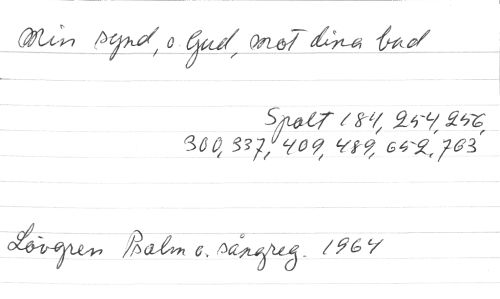 Min synd, o Gud, mot dina bud
Spalt 184, 254, 256,
300, 337, 409, 489, 652, 763
Lövgren Psalm o. sångreg. 1964